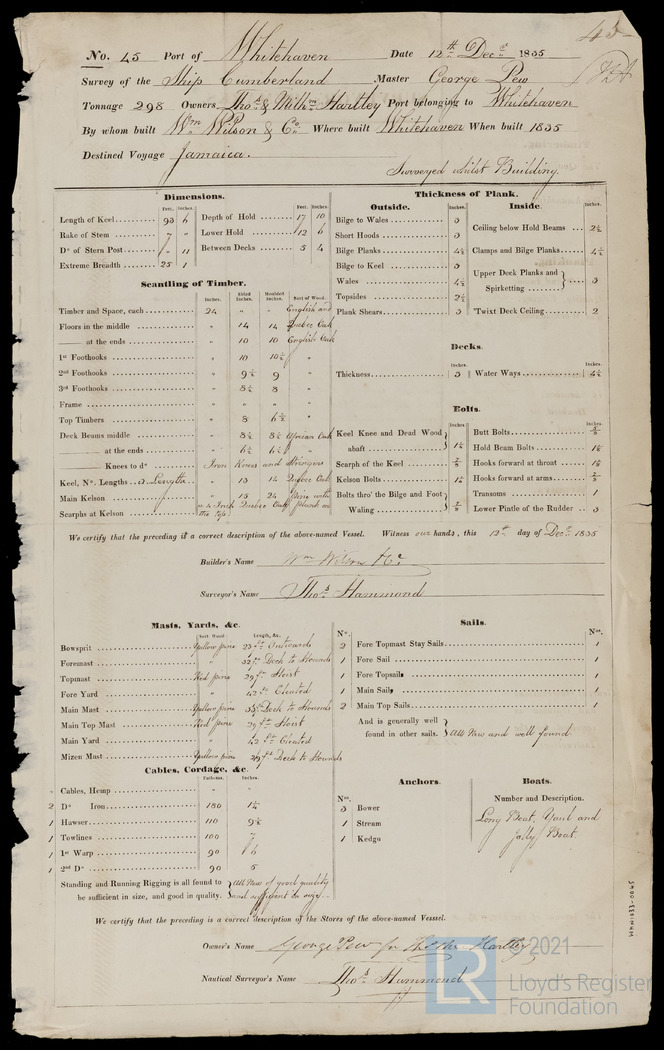 45
No. 45 Port of Whitehaven Date 12th Decr 1835
Survey of the Ship Cumberland Master George Pew
Tonnage 298 Owners Thos & Milhm Hartley Port belonging to Whitehaven
By whom built Wm Wilson & Co. Where built Whitehaven When built 1835
Destined Voyage Jamaica.
Surveyed whilst Building.
Dimensions.
Feet. Inches. Feet. Inches.
Length of Keel 93 6 Depth of Hold 17 10
Rake of Stem 7 " Lower Hold 12 6
Do of Stern Post - 11 Between Decks 5 4
Extreme Breadth 25 1
Thickness of Plank.
Outside. Inside.
Inches. Inches.
Bilge to Wales 3
Short Hoods 3
Bilge Planks 4½
Bilge to Keel 3
Wales 4½
Topsides 2½
Plank Shears 3
Ceiling below Hold Beams 2½
Clamps and Bilge Planks 4½
Upper Deck Planks and Spirketting 3
'Twixt Deck Ceiling 2
Scantling of Timber.
Inches. Sided Inches. Moulded Inches. Sort of Wood.
Timber and Space, each 24 " " English and
Floors in the middle " 14 14 Quebec Oak
—— at the ends " 10 10 English Oak
1st Foothooks " 10 10½ "
2nd Foothooks " 9½ 9 "
3rd Foothooks " 8½ 8 "
Frame " " " "
Top Timbers " 8 6½ "
Deck Beams middle " 8½ 8½ African Oak
—— at the ends " 6½ 6½ "
—— Knees to do Iron Knees and Stringers
Keel, No. Lengths 3 Length " 13 14 Quebec Oak
Main Kelson " 15 24 Pine with
Scarphs at Kelson a 4 Inch Quebec Oak plank on the top
Decks.
Inches. Inches.
Thickness 3 Water Ways 4½
Bolts.
Inches Inches
Keel Knee and Dead Wood abaft 1⅛
Scarph of the Keel ⅞
Kelson Bolts 1⅛
Bolts thro' the Bilge and Foot Waling ⅞
Butt Bolts ⅝
Hold Beam Bolts
Hooks forward at throat
Hooks forward at arms
Transoms 1
Lower Pintle of the Rudder 3
We certify that the preceding is a correct description of the above-named Vessel. Witness our hands, this 12th day of Decr 1835
Builder's Name Wm Wilson & Co
Surveyor's Name Thos. Hammond
Masts, Yards, &c.
Sort Wood Length, &c.
Bowsprit Yellow pine 23 ft Outwards
Foremast " 52 ft Deck to Hounds
Topmast Red pine 29 ft Hoist
Fore Yard " 42 ft Cleated
Main Mast Yellow pine 55 ft Deck to Hounds
Main Top Mast Red pine 29 ft Hoist
Main Yard " 42 ft Cleated
Mizen Mast Yellow pine ft Deck to Hounds
Sails.
No. Nos.
2 Fore Topmast Stay Sails 1
1 Fore Sail 1
1 Fore Topsails 1
1 Main Sail 1
2 Main Top Sails 1
And is generally well found in other sails. All New and well found
Cables, Cordage, &c.
Fathoms. Inches.
Cables, Hemp " "
2 Do Iron 180 1¼
1 Hawser 110 9½
1 Towlines 100 7
1 1st Warp 90 6
1 2nd Do 90 5
Standing and Running Rigging is all found to be sufficient in size, and good in quality. All New of good quality and sufficient in size
Anchors.
No.
3 Bower
1 Stream
1 Kedge
Boats.
Number and Description.
Long Boat, Yawl and
Jolly Boat.
We certify that the preceding is a correct description of the Stores of the above-named Vessel.
Owner's Name George Pew for Thos Hartley
Nautical Surveyor's Name Thos. Hammond
WHN1033-0045
LR
© 2021
Lloyd's Register
Foundation